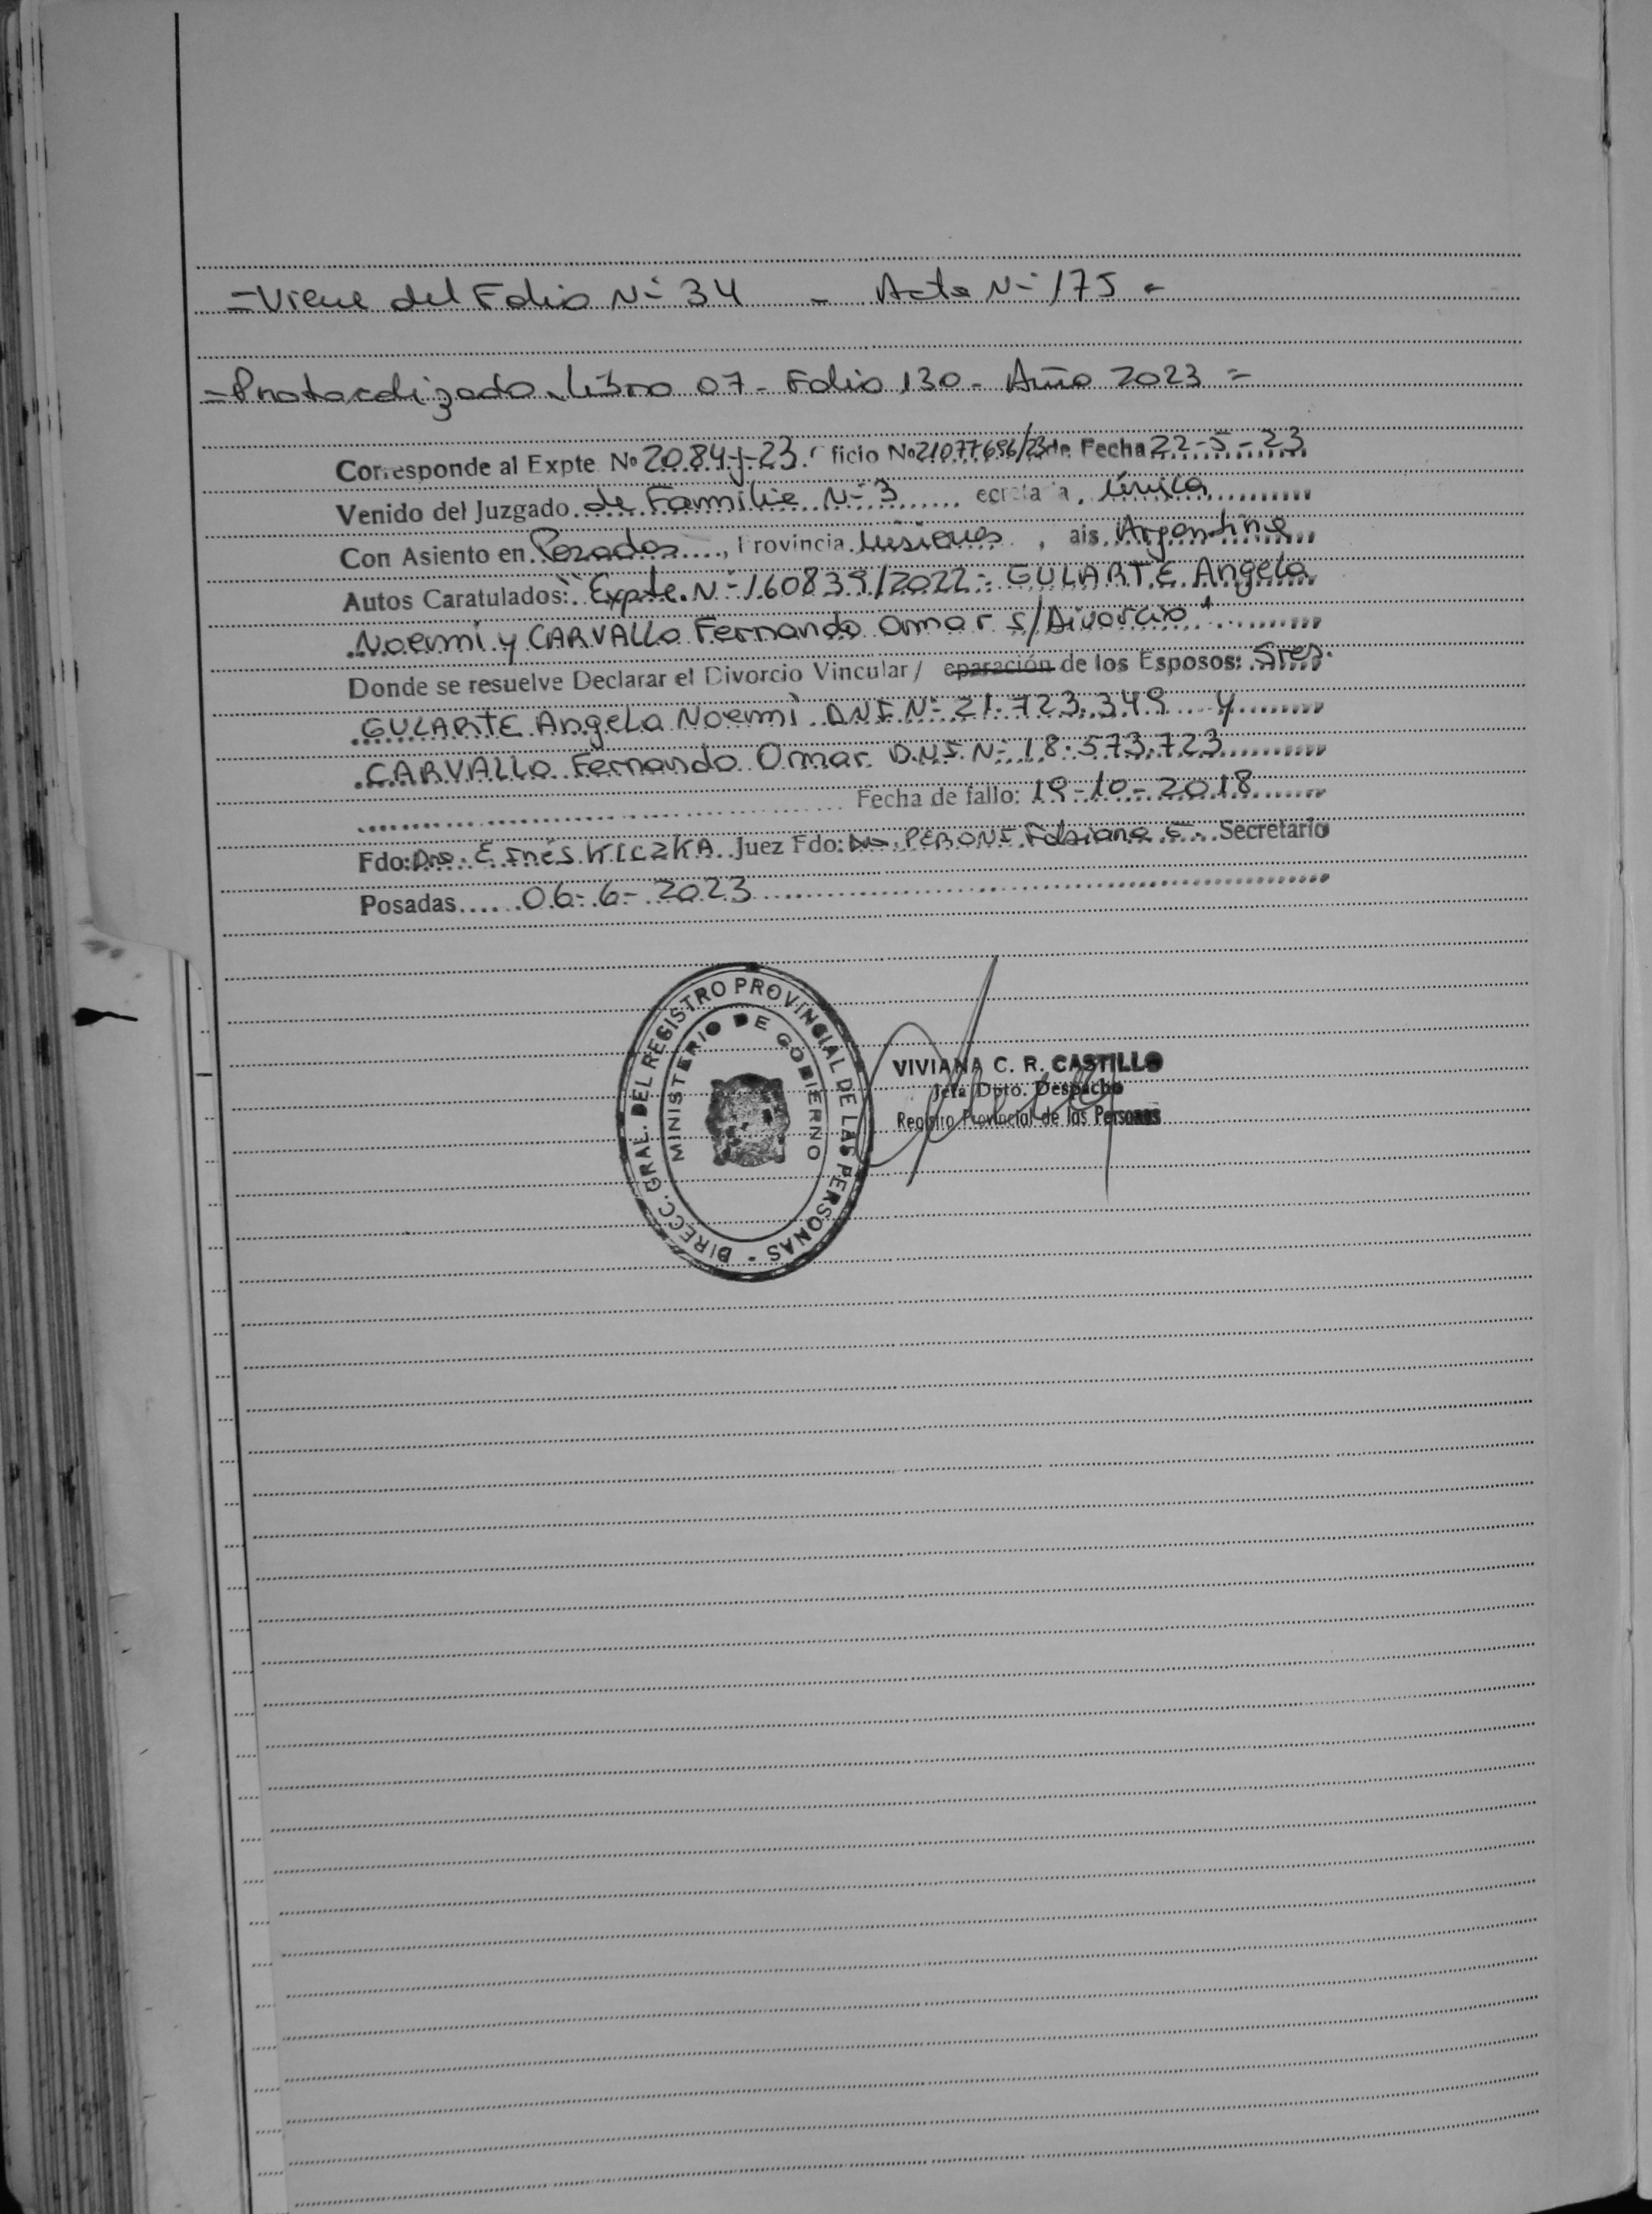 =Viene del Folio Nº 34 - Acta Nº 175 =
=Protocolizado. Libro 07- Folio 130- Año 2023 =
Corresponde al Expte. Nº 2084-J-23. ficio Nº 21077696/23 de Fecha 22-5-23
Venido del Juzgado de Familia Nº 3 ecretaría, Única
Con Asiento en Posadas, Provincia Misiones, ais Argentina
Autos Caratulados: "Expte. Nº 160839/2022- GULARTE Angela
Noemi y CARVALLO Fernando Omar s/Divorcio"
Donde se resuelve Declarar el Divorcio Vincular/ eparación de los Esposos: Sres.
GULARTE Angela Noemi DNI Nº 21.723.349 y
CARVALLO Fernando Omar D.N.I. Nº 18.573.723
Fecha de fallo: 19-10-2018
Fdo: Dra. E. Inés KICZKA Juez Fdo: Dra. PERONI Fabiana E. Secretario
Posadas 06-6-2023
DIRECC. GRAL. DEL REGISTRO PROVINCIAL DE LAS PERSONAS -
MINISTERIO DE GOBIERNO
VIVIANA C. R. CASTILLO
Jefa Dpto. Despacho
Registro Provincial de las Personas